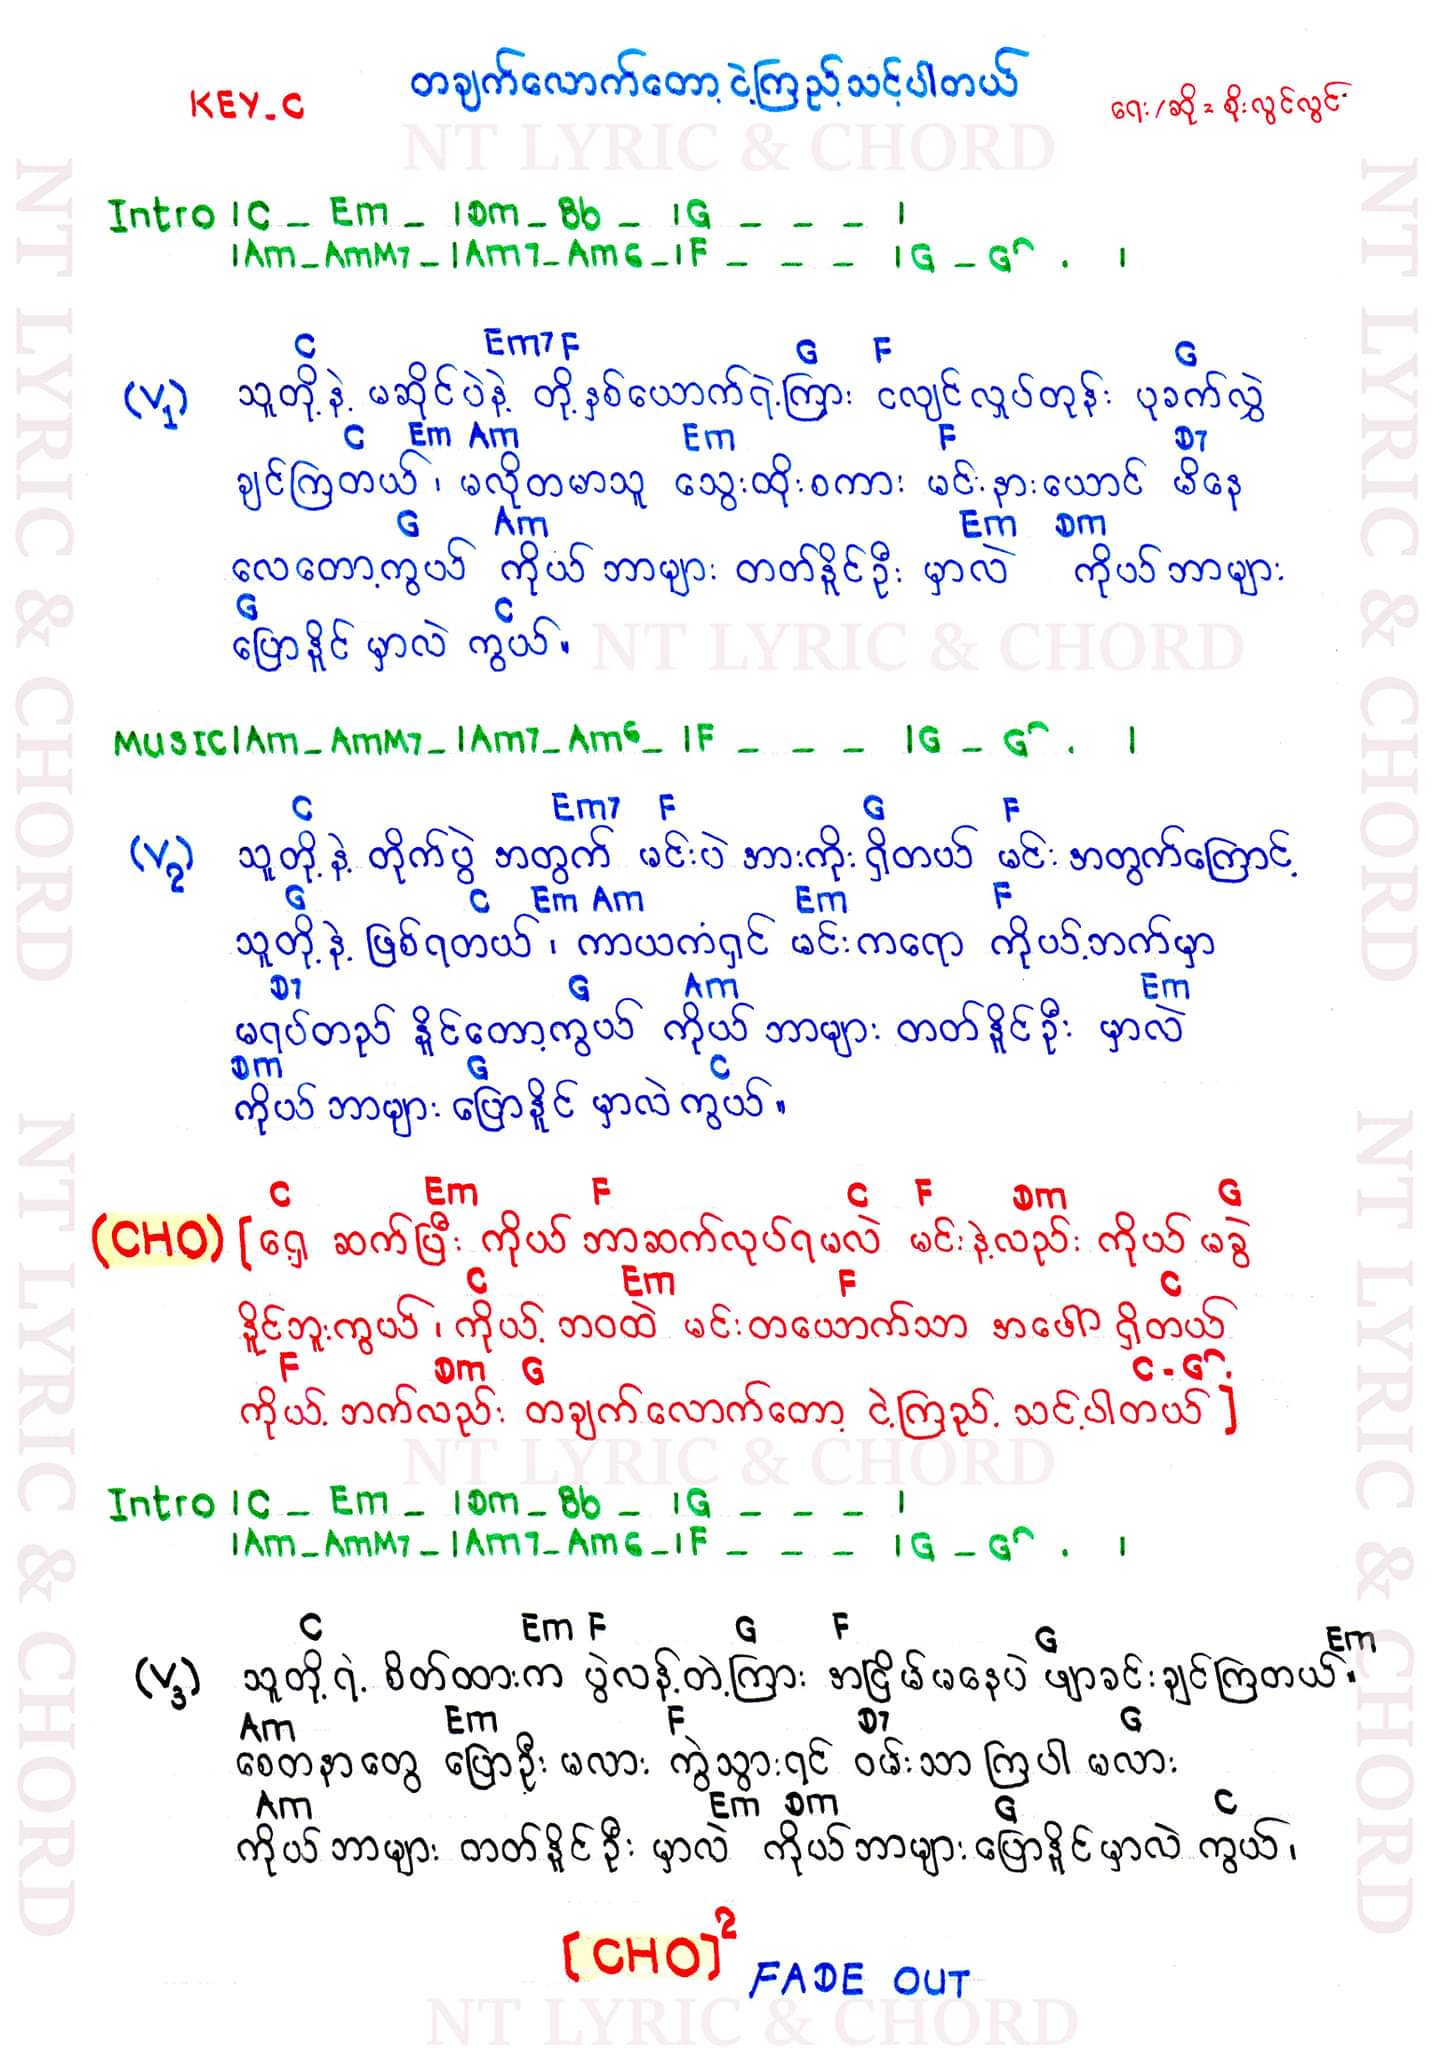 တချက်လောက်တော့ ငဲ့ကြည့်သင့်ပါတယ်
KEY-C
ရေး/ဆို = စိုးလွင်လွင်
NT LYRIC & CHORD
Intro |C _ Em _ |Dm _ Bb _ |G _ _ _ |
|Am _ AmM7 _ |Am7 _ Am6 _ |F _ _ _ |G _ G^ . |
C Em7 F G F G
(V1) သူတို့နဲ့ မဆိုင်ပဲနဲ့ တို့နှစ်ယောက်ရဲ့ကြား ငလျင်လှုပ်တုန်း ပုခက်လွှဲ
C Em Am Em F D7
ချင်ကြတယ်၊ မလိုတမာသူ သွေးထိုးစကား မင်းနားယောင် မိနေ
G Am Em Dm
လေတော့ကွယ် ကိုယ်ဘာများ တတ်နိုင်ဦး မှာလဲ ကိုယ်ဘာများ
G C
ပြောနိုင် မှာလဲ ကွယ်။
NT LYRIC & CHORD
MUSIC |Am _ AmM7 _ |Am7 _ Am6 _ |F _ _ _ |G _ G^ . |
C Em7 F G F
(V2) သူတို့နဲ့ တိုက်ပွဲ အတွက် မင်းပဲ အားကိုး ရှိတယ် မင်း အတွက်ကြောင့်
G C Em Am Em F
သူတို့နဲ့ ဖြစ်ရတယ်၊ ကာယကံရှင် မင်းကရော ကိုယ့်ဘက်မှာ
D7 G Am Em
မရပ်တည် နိုင်တော့ကွယ် ကိုယ်ဘာများ တတ်နိုင်ဦး မှာလဲ
Dm G C
ကိုယ်ဘာများ ပြောနိုင် မှာလဲကွယ်။
C Em F C F Dm G
(CHO) [ရှေ့ ဆက်ပြီး ကိုယ် ဘာဆက်လုပ်ရမလဲ မင်းနဲ့လည်း ကိုယ် မခွဲ
C Em F C
နိုင်ဘူးကွယ်၊ ကိုယ့် ဘဝထဲ မင်းတယောက်သာ အဖေါ် ရှိတယ်
F Dm G C - G^.
ကိုယ့် ဘက်လည်း တချက်လောက်တော့ ငဲ့ကြည့် သင့်ပါတယ်]
NT LYRIC & CHORD
Intro |C _ Em _ |Dm _ Bb _ |G _ _ _ |
|Am _ AmM7 _ |Am7 _ Am6 _ |F _ _ _ |G _ G^ . |
C Em F G F G Em
(V3) သူတို့ရဲ့ စိတ်ထားက ပွဲလန့်တဲ့ကြား အငြိမ်မနေပဲ ဖျာခင်းချင်ကြတယ်။
Am Em F D7 G
စေတနာတွေ ပြောဦး မလား ကွဲသွားရင် ဝမ်းသာ ကြပါ မလား
Am Em Dm G C
ကိုယ်ဘာများ တတ်နိုင်ဦး မှာလဲ ကိုယ်ဘာများပြောနိုင်မှာလဲ ကွယ်၊
[CHO]2 FADE OUT
NT LYRIC & CHORD
NT LYRIC & CHORD
NT LYRIC & CHORD
NT LYRIC & CHORD
NT LYRIC & CHORD